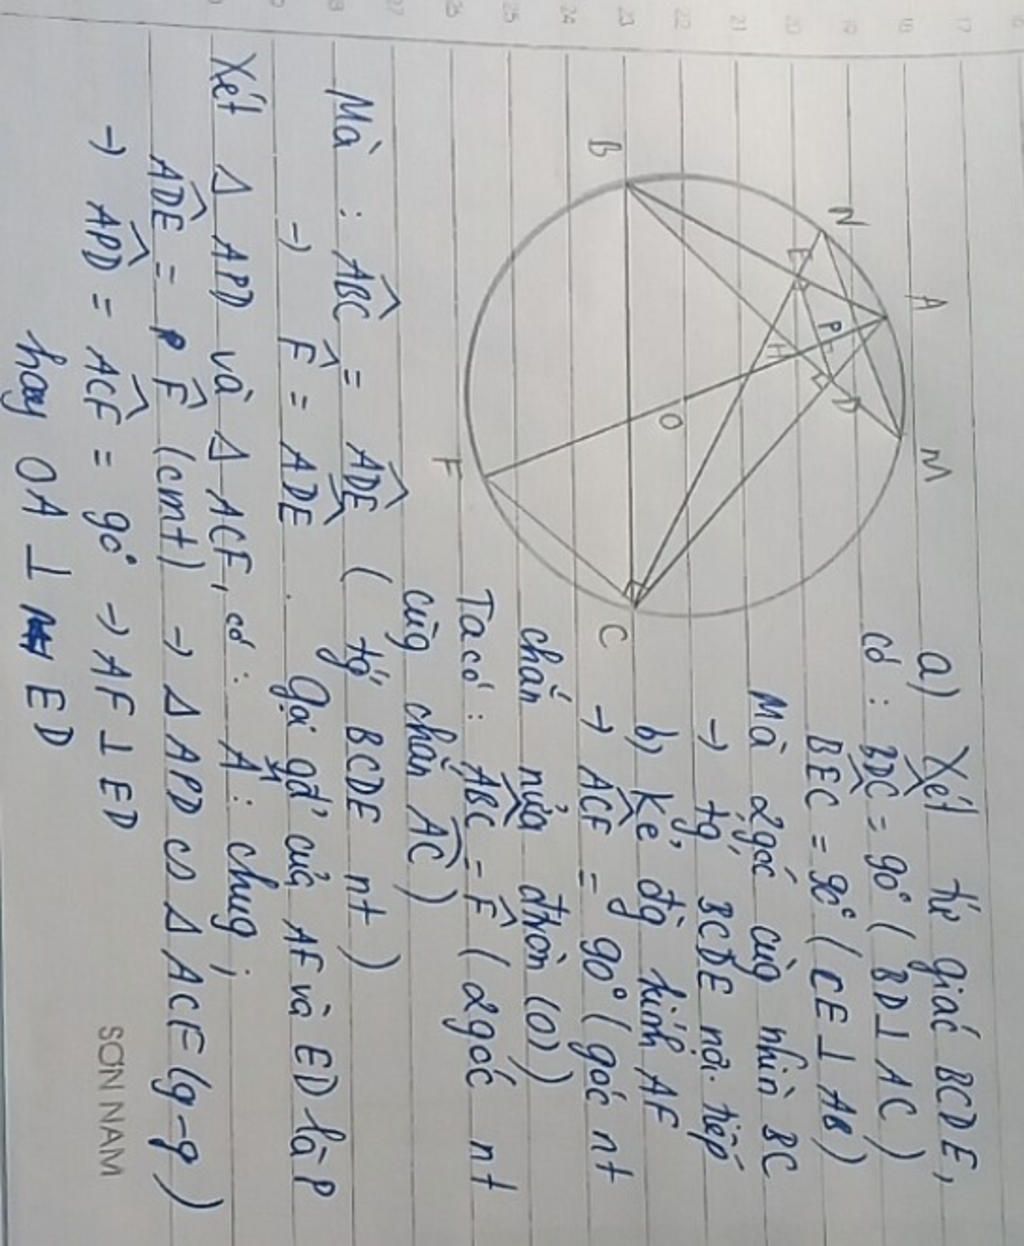 17
18
19
20
21
22
23
24
25
26
27
28
B
N
A
E
P
H
D
M
O
F
C
a) Xét tứ giác BCDE,
có : BDC = 90° ( BD ⊥ AC )
BEC = 90° ( CE ⊥ AB )
Mà 2 góc cùg nhìn BC
→ tg BCDE nội tiếp
b) Kẻ đg kính AF
→ ACF = 90° ( góc nt
chắn nửa đtròn (O))
Ta có : ABC = F ( 2 góc nt
cùg chắn AC )
Mà : ABC = ADE ( tg BCDE nt )
→ F = ADE . Gọi gđ' của AF và ED là P
Xét Δ APD và Δ ACF, có : A : chug ;
ADE = F (cmt) → Δ APD ∽ Δ ACF (g-g)
→ APD = ACF = 90° → AF ⊥ ED
hay OA ⊥ ED
SƠN NAM